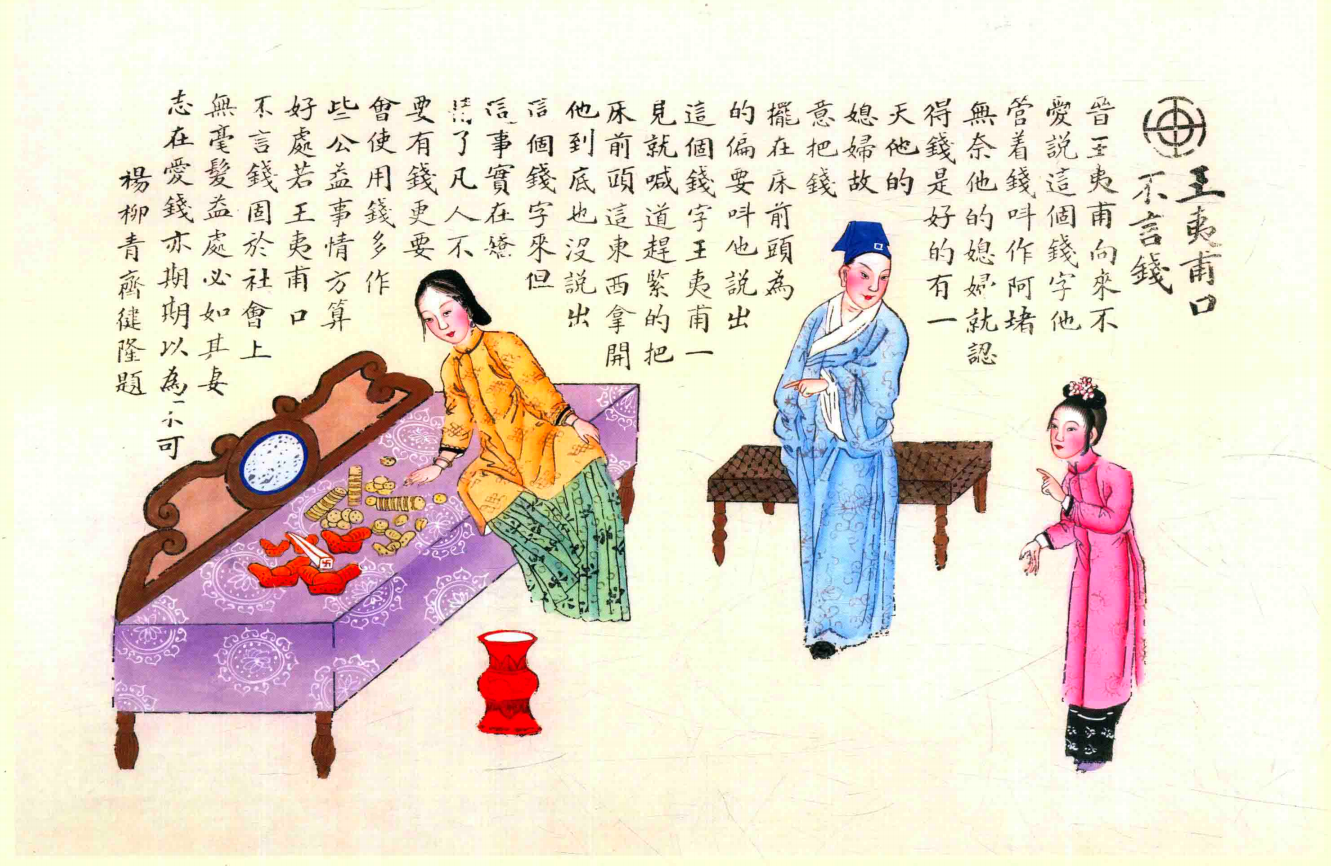 王夷甫口
不言錢
晉王夷甫向來不
愛說這個錢字他
管着錢叫作阿堵
無奈他的媳婦就認
得錢是好的有一
天他的
媳婦故
意把錢
擺在床前頭為
的偏要叫他說出
這個錢字王夷甫一
見就喊道趕緊的把
床前頭這東西拿開
他到底也沒說出
這個錢字來但
這事實在矯
了凡人不
要有錢更要
會使用錢多作
些公益事情方算
好處若王夷甫口
不言錢固於社會上
無毫髮益處必如其妻
志在愛錢亦期期以為不可
楊柳青齋健隆題